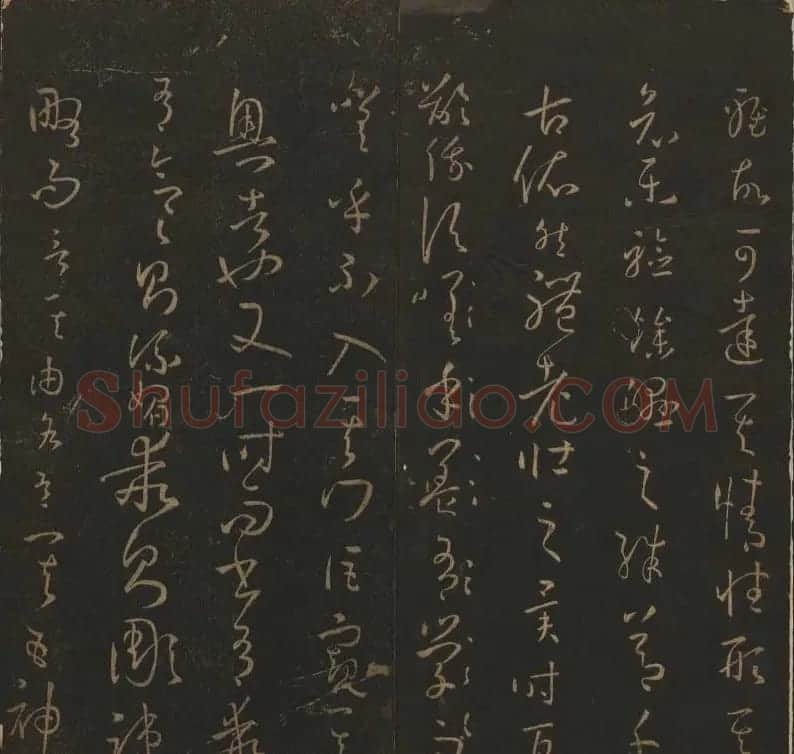 雅故可達其情性形其
哀樂驗燥濕之殊節千
古依然體老壯之異時百
齡俄頃
嗟乎不入其門詎窺其
奧者也又一時而書有乖
有合合則流媚乖則彫疎
略而言其由各有其五神
Shufaziliao.COM